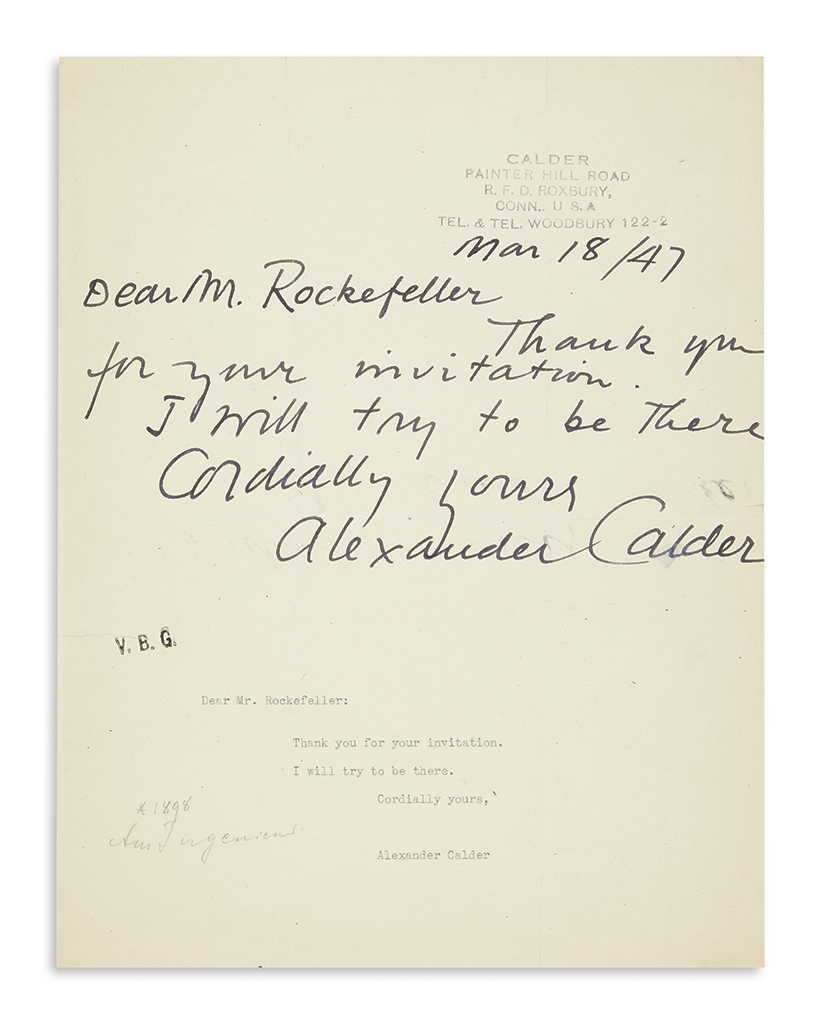 CALDER
PAINTER HILL ROAD
R. F. D. ROXBURY,
CONN., U S. A
TEL. & TEL. WOODBURY 122-2
Mar 18/47
Dear Mr. Rockefeller
Thank you
for your invitation.
I will try to be there
Cordially yours
Alexander Calder
V. B. G.
Dear Mr. Rockefeller:
Thank you for your invitation.
I will try to be there.
Cordially yours,
* 1898
Alexander Calder